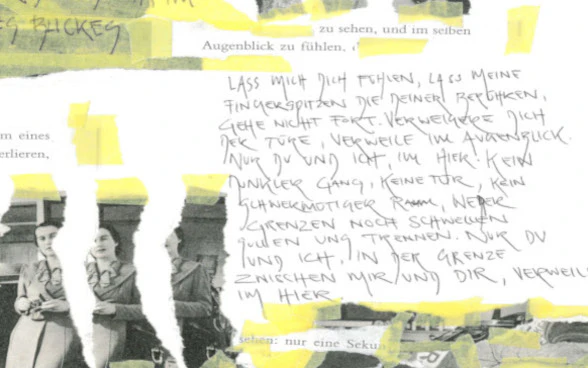 ES BLICKES
zu sehen, und im selben
Augenblick zu fühlen,
LASS MICH DICH FÜHLEN, LASS MEINE
FINGERSPITZEN DIE DEINER BERÜHREN,
GEHE NICHT FORT. VERWEIGERE DICH
DER TÜRE, VERWEILE IM AUGENBLICK.
NUR DU UND ICH, IM HIER. KEIN
DUNKLER GANG, KEINE TÜR, KEIN
SCHWERMÜTIGER RAUM, WEDER
GRENZEN NOCH SCHWELLEN
SOLLEN UNS TRENNEN. NUR DU
UND ICH, IN DER GRENZE
ZWISCHEN MIR UND DIR, VERWEIL
IM HIER.
m eines
erlieren,
sehen: nur eine Seku